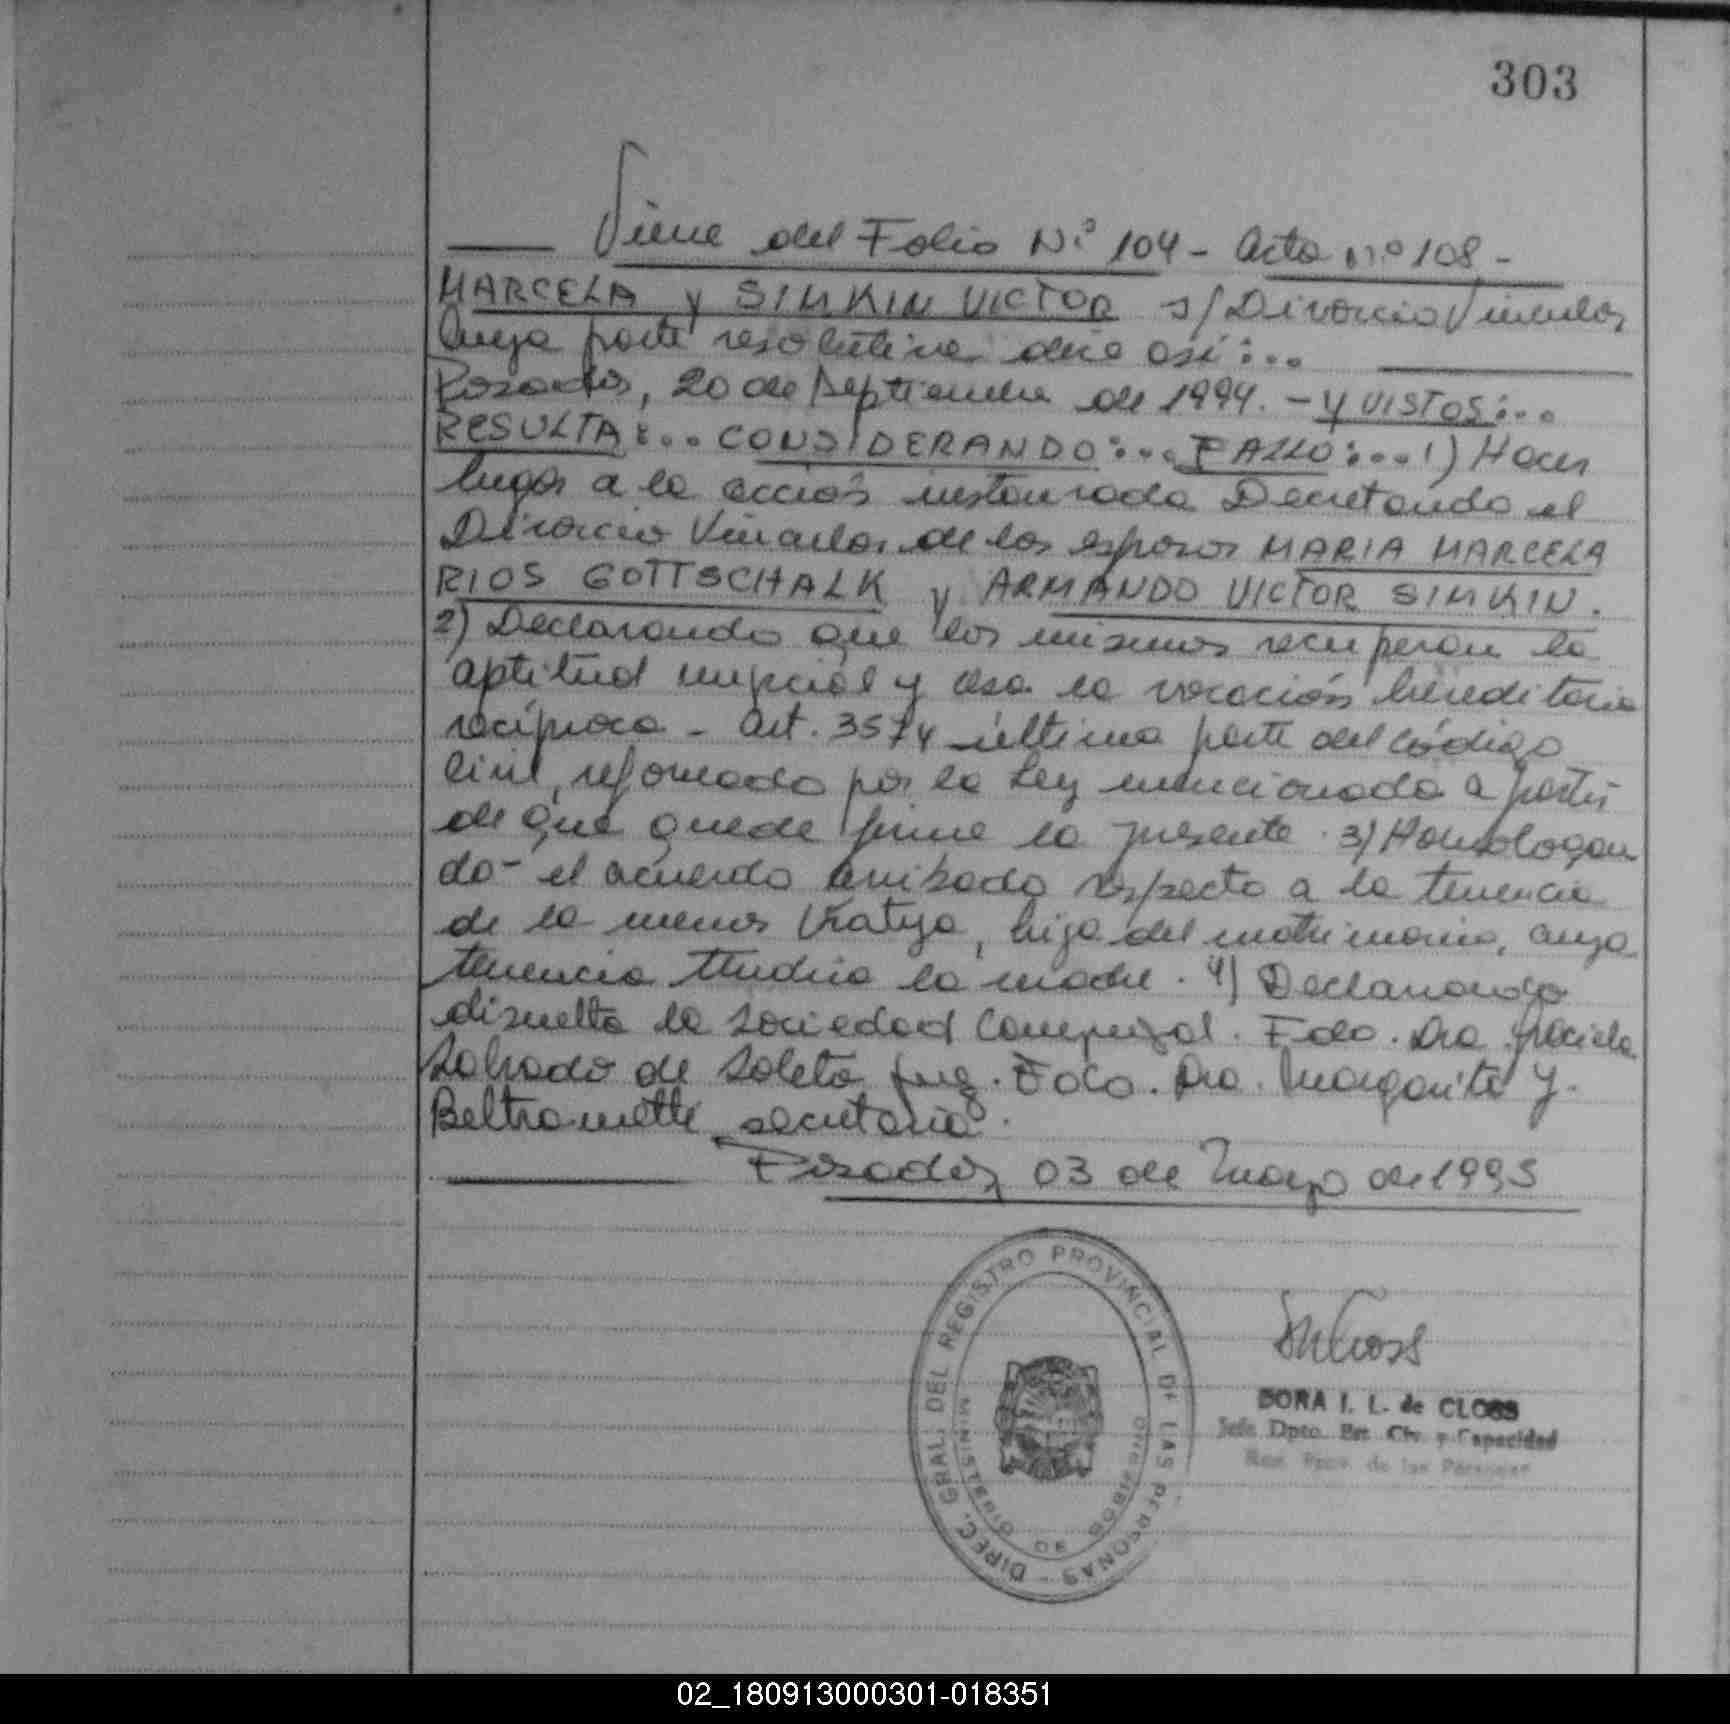 303
Viene del Folio Nº 104 - Acta nº 108 -
MARCELA y SIMKIN VICTOR s/ Divorcio Vincular
Cuya parte resolutiva dice así:...
Posadas, 20 de Septiembre de 1994. - Y VISTOS:...
RESULTA:... CONSIDERANDO:... FALLO:... 1) Hacer
lugar a la acción instaurada Decretando el
Divorcio Vincular de los esposos MARIA MARCELA
RIOS GOTTSCHALK y ARMANDO VICTOR SIMKIN.
2) Declarando que los mismos recuperan la
aptitud nupcial y cesa la vocación hereditaria
recíproca - Art. 3574 última parte del Código
Civil, reformado por la Ley mencionada a partir
de que quede firme la presente. 3) Homologan
do - el acuerdo arribado respecto a la tenencia
de la menor Katya, hija del matrimonio, cuya
tenencia tendrá la madre. 4) Declarando
disuelta la Sociedad Conyugal. Fdo. Dra. Graciela
de Soleto Juez. Fdo. Dra. Margarita Y.
Beltrametti secretaria.
Posadas, 03 de Mayo de 1995
DIREC. GRAL. DEL REGISTRO PROVINCIAL DE LAS PERSONAS -
MINISTERIO DE GOBIERNO
DORA I. L. de CLOSS
Jefe Dpto. Est. Civ. y Capacidad
Reg. Prov. de las Personas
02_180913000301-018351